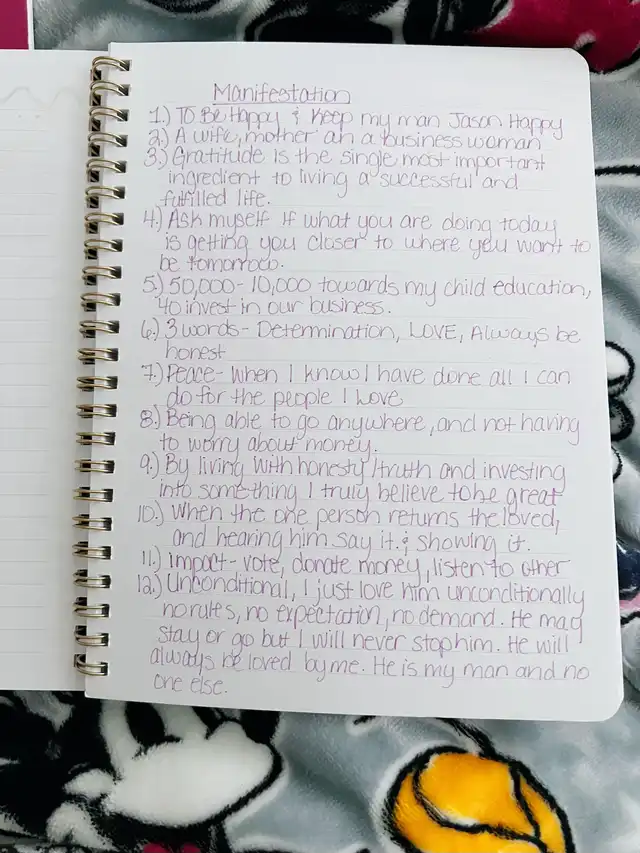 Manifestation
1.) To Be Happy & Keep my man Jason Happy
2.) A wife, mother an a business woman
3.) Gratitude is the single most important
ingredient to living a successful and
fulfilled life.
4.) Ask myself if what you are doing today
is getting you closer to where you want to
be tomorrow.
5.) 50,000- 10,000 towards my child education,
40 invest in our business.
6.) 3 words- Determination, LOVE, Always be
honest
7.) Peace- when I know I have done all I can
do for the people I love.
8.) Being able to go anywhere, and not having
to worry about money.
9.) By living with honesty/truth and investing
into something I truly believe to be great
10.) When the one person returns the loved,
and hearing him say it. & showing it.
11.) impact- vote, donate money, listen to other
12.) Unconditional, I just love him unconditionally
no rules, no expectation, no demand. He may
stay or go but I will never stop him. He will
always be loved by me. He is my man and no
one else.